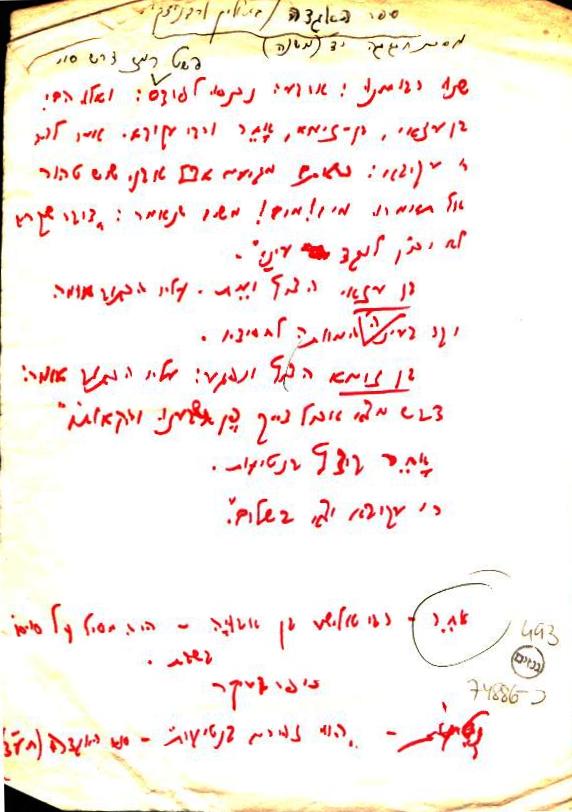 ספר האגדה (ביאליק ורבניצקי)
מסכת חגיגה יד (משנה)
פשט רמז דרש סוד
שנו רבותנו: ארבעה נכנסו לפרדס: ואלו הם:
בן עזאי, בן-זומא, אַחֵר ורבי עקיבא. אמר להם
ר' עקיבא: כשאתם מגיעים אצל אבני שיש טהור
אל תאמרו מים! מים! משום שנאמר: "דובר שקרים
לא יכון לנגד עיני".
בן עזאי הציץ ומת. עליו הכתוב אומר:
יקר בעיני ה' המותה לחסידיו.
בן זומא הציץ ונפגע: עליו הכתוב אומר:
דבש מצאת אכול דייך פֶּן תשבענו והקאותו"
אַחֵר קיצץ בנטיעות.
רבי עקיבא יצא בשלום".
אַחֵר - רבי אלישע בן אבויה - היה
בשבת.
כופר בעיקר
בנטיעות -
493
גנזים
74886 כ